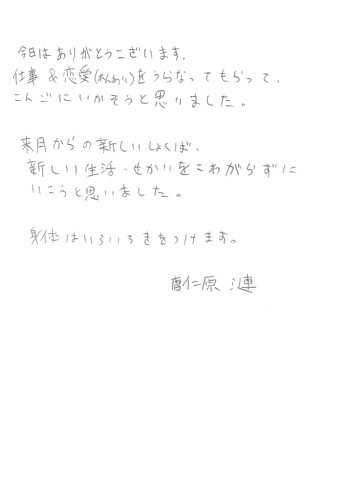 今日はありがとうございます.
仕事 & 恋愛(れんあい)をうらなってもらって.
こんごにいかそうと思いました。
来月からの新しいしょくば.
新しい生活・せかいをこわがらずに
いこうと思いました。
身体はいろいろきをつけます。
唐仁原 漣